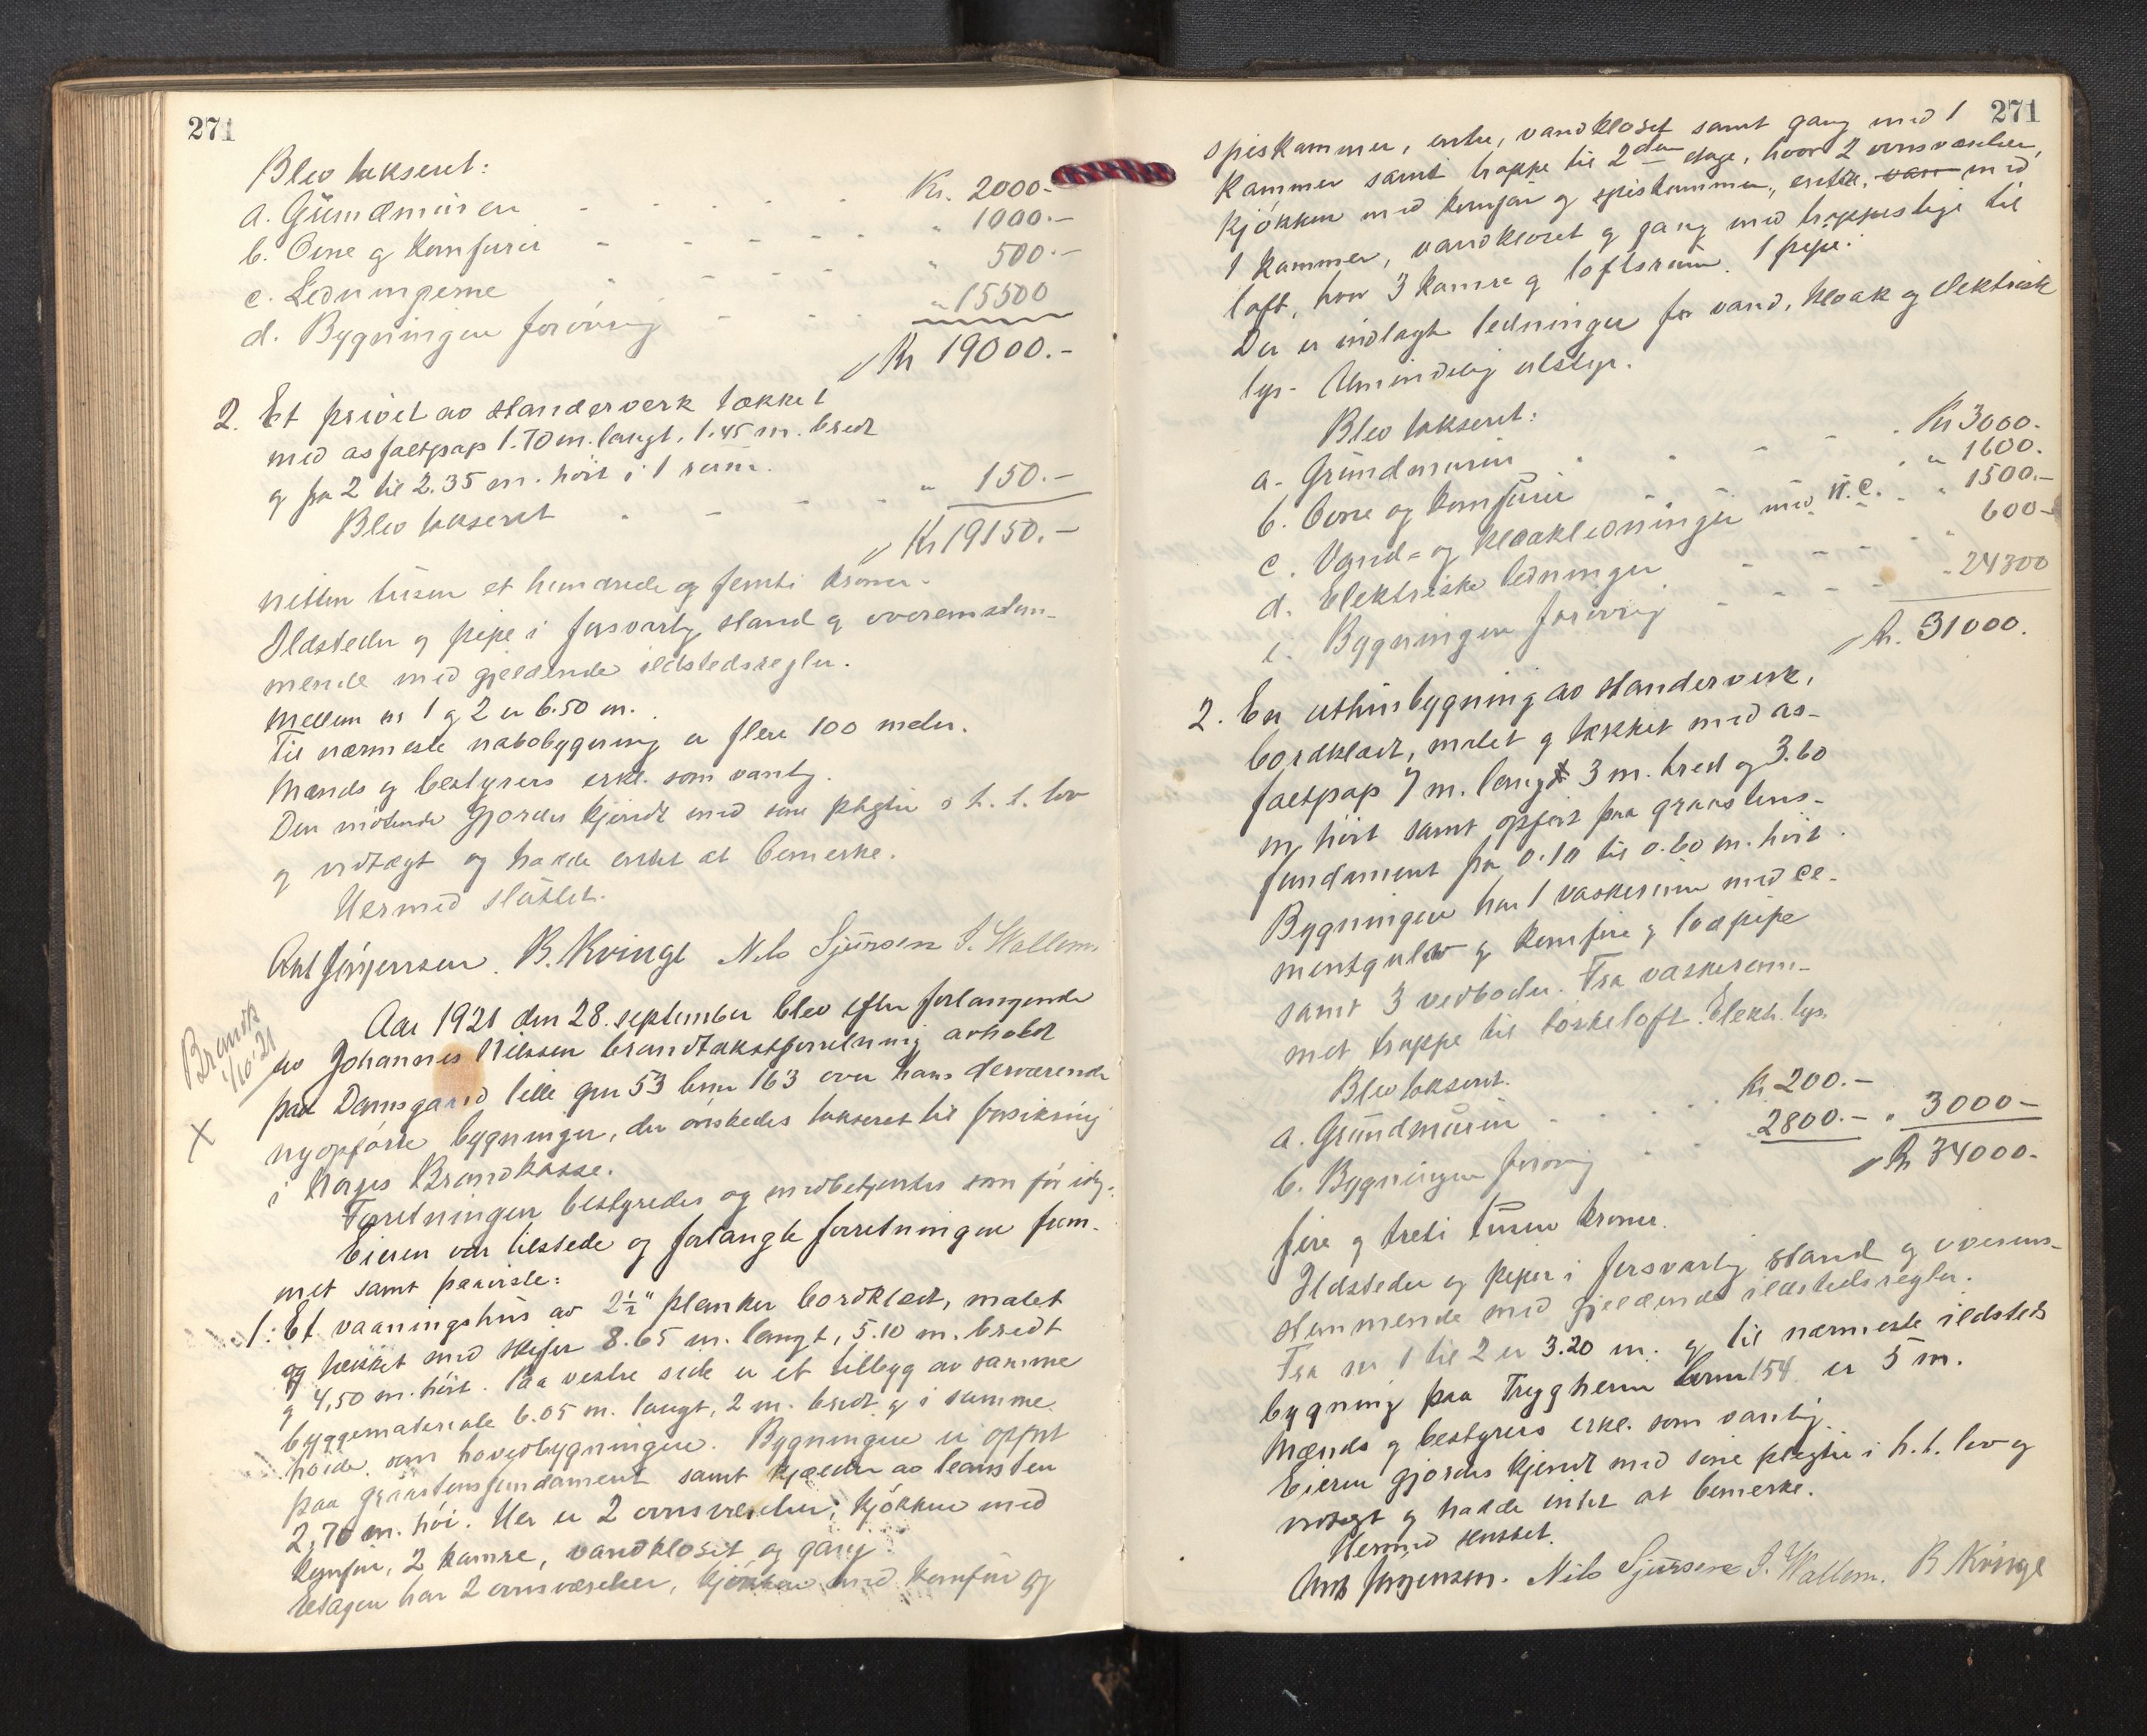 271
Blev takseret:
a. Grundmuren - - - - Kr. 2000.-
b. Ovne og komfurer - - - - " 1000.-
c. Ledningerne - - - - " 500.-
d. Bygningen forøvrig - - - " 15500
Kr 19000.-
2. Et privet av standerverk tækket
med asfaltpap 1.70 m. langt, 1.45 m. bredt
og fra 2 til 2.35 m. høit i 1 rum.
Blev takseret - - - - " 150.-
Kr 19150.-
nitten tusen et hundrede og femti kroner.
Ildsteder og pipe i forsvarlig stand og overensstem-
mende med gjeldende ildstedsregler.
Mellem nr 1 og 2 er 6.50 m.
Til nærmeste nabobygning er flere 100 meter.
Mænds og bestyrers erkl. som vanlig.
Den møtende gjordes kjendt med sine pligter i h. t. lov
og vedtægt og hadde intet at bemerke.
Hermed sluttet.
Ant Jørgensen. B. Kvinge Nils Sjursen I. Wallem
Brandk
1/10 21
X
Aar 1921 den 28. september blev efter forlangende
av Johannes Nilssen brandtakstforretning avholdt
paa Damsgaard lille gnr 53 bnr 163 over hans derværende
nyopførte bygninger, der ønskedes takseret til forsikring
i Norges Brandkasse.
Forretningen bestyredes og medbetjentes som før idg.
Eieren var tilstede og forlangte forretningen frem-
met samt paaviste:
1. Et vaaningshus av 2½" planker bordklædt, malet
og tækket med skifer 8.65 m. langt, 5.10 m. bredt
og 4,50 m. høit. Paa vestre side er et tilbygg av samme
byggemateriale 6.05 m. langt, 2 m. bredt og i samme
høide som hovedbygningen. Bygningen er opført
paa graastensfundament samt kjælder av
2,70 m. høi. Her er 2 ovnsværelser, kjøkken med
komfur, 2 kamre, vandkloset og gang.
etagen har 2 ovnsværelser, kjøkken med komfur og
271
spiskammer, entre, vandkloset samt gang med 1
kammer samt trappe til 2den etage, hvor 2 ovnsværelser,
kjøkken med komfur og spiskammer, entre, van med
1 kammer, vandkloset og gang med trappestige til
loft, hvor 3 kamre og loftsrum. 1 pipe.
Der er indlagt ledninger for vand, kloak og elektrisk
lys. Almindelig utstyr.
Blev takseret:
a. Grundmuren - - - - Kr 3000.-
b. Ovne og komfurer - - - " 1600.
c. Vand- og kloakledninger med W.C. - " 1500.-
d. Elektriske ledninger - - - " 600-
e. Bygningen forøvrig - - - - 24300
Kr. 31000.
2. En uthusbygning av standerverk,
bordklædt, malet og tækket med as-
faltpap 7 m. lang 3 m. bred og 3.60
m høit samt opført paa graastens-
fundament fra 0.10 til 0.60 m. høit.
Bygningen har 1 vaskerum med ce-
mentgulv og komfur og lodpipe
samt 3 vedboder. Fra vaskerum-
met trappe til tørkeloft. Elektr. lys.
Blev takseret.
a. Grundmuren - - - - Kr 200.-
b. Bygningen forøvrig - - 2800.- " 3000-
Kr 34000.-
fire og treti tusen kroner.
Ildsteder og piper i forsvarlig stand og overens-
stemmende med gjeldende ildstedsregler.
Fra nr 1 til 2 er 3.20 m. og til nærmeste ildsteds
bygning paa Trygheim bnr 154 er 5 m.
Mænds og bestyrers erkl. som vanlig.
Eieren gjordes kjendt med sine pligter i h. t. lov og
vedtægt og hadde intet at bemerke.
Hermed sluttet.
Ant Jørgensen. Nils Sjursen I. Wallem. B Kvinge